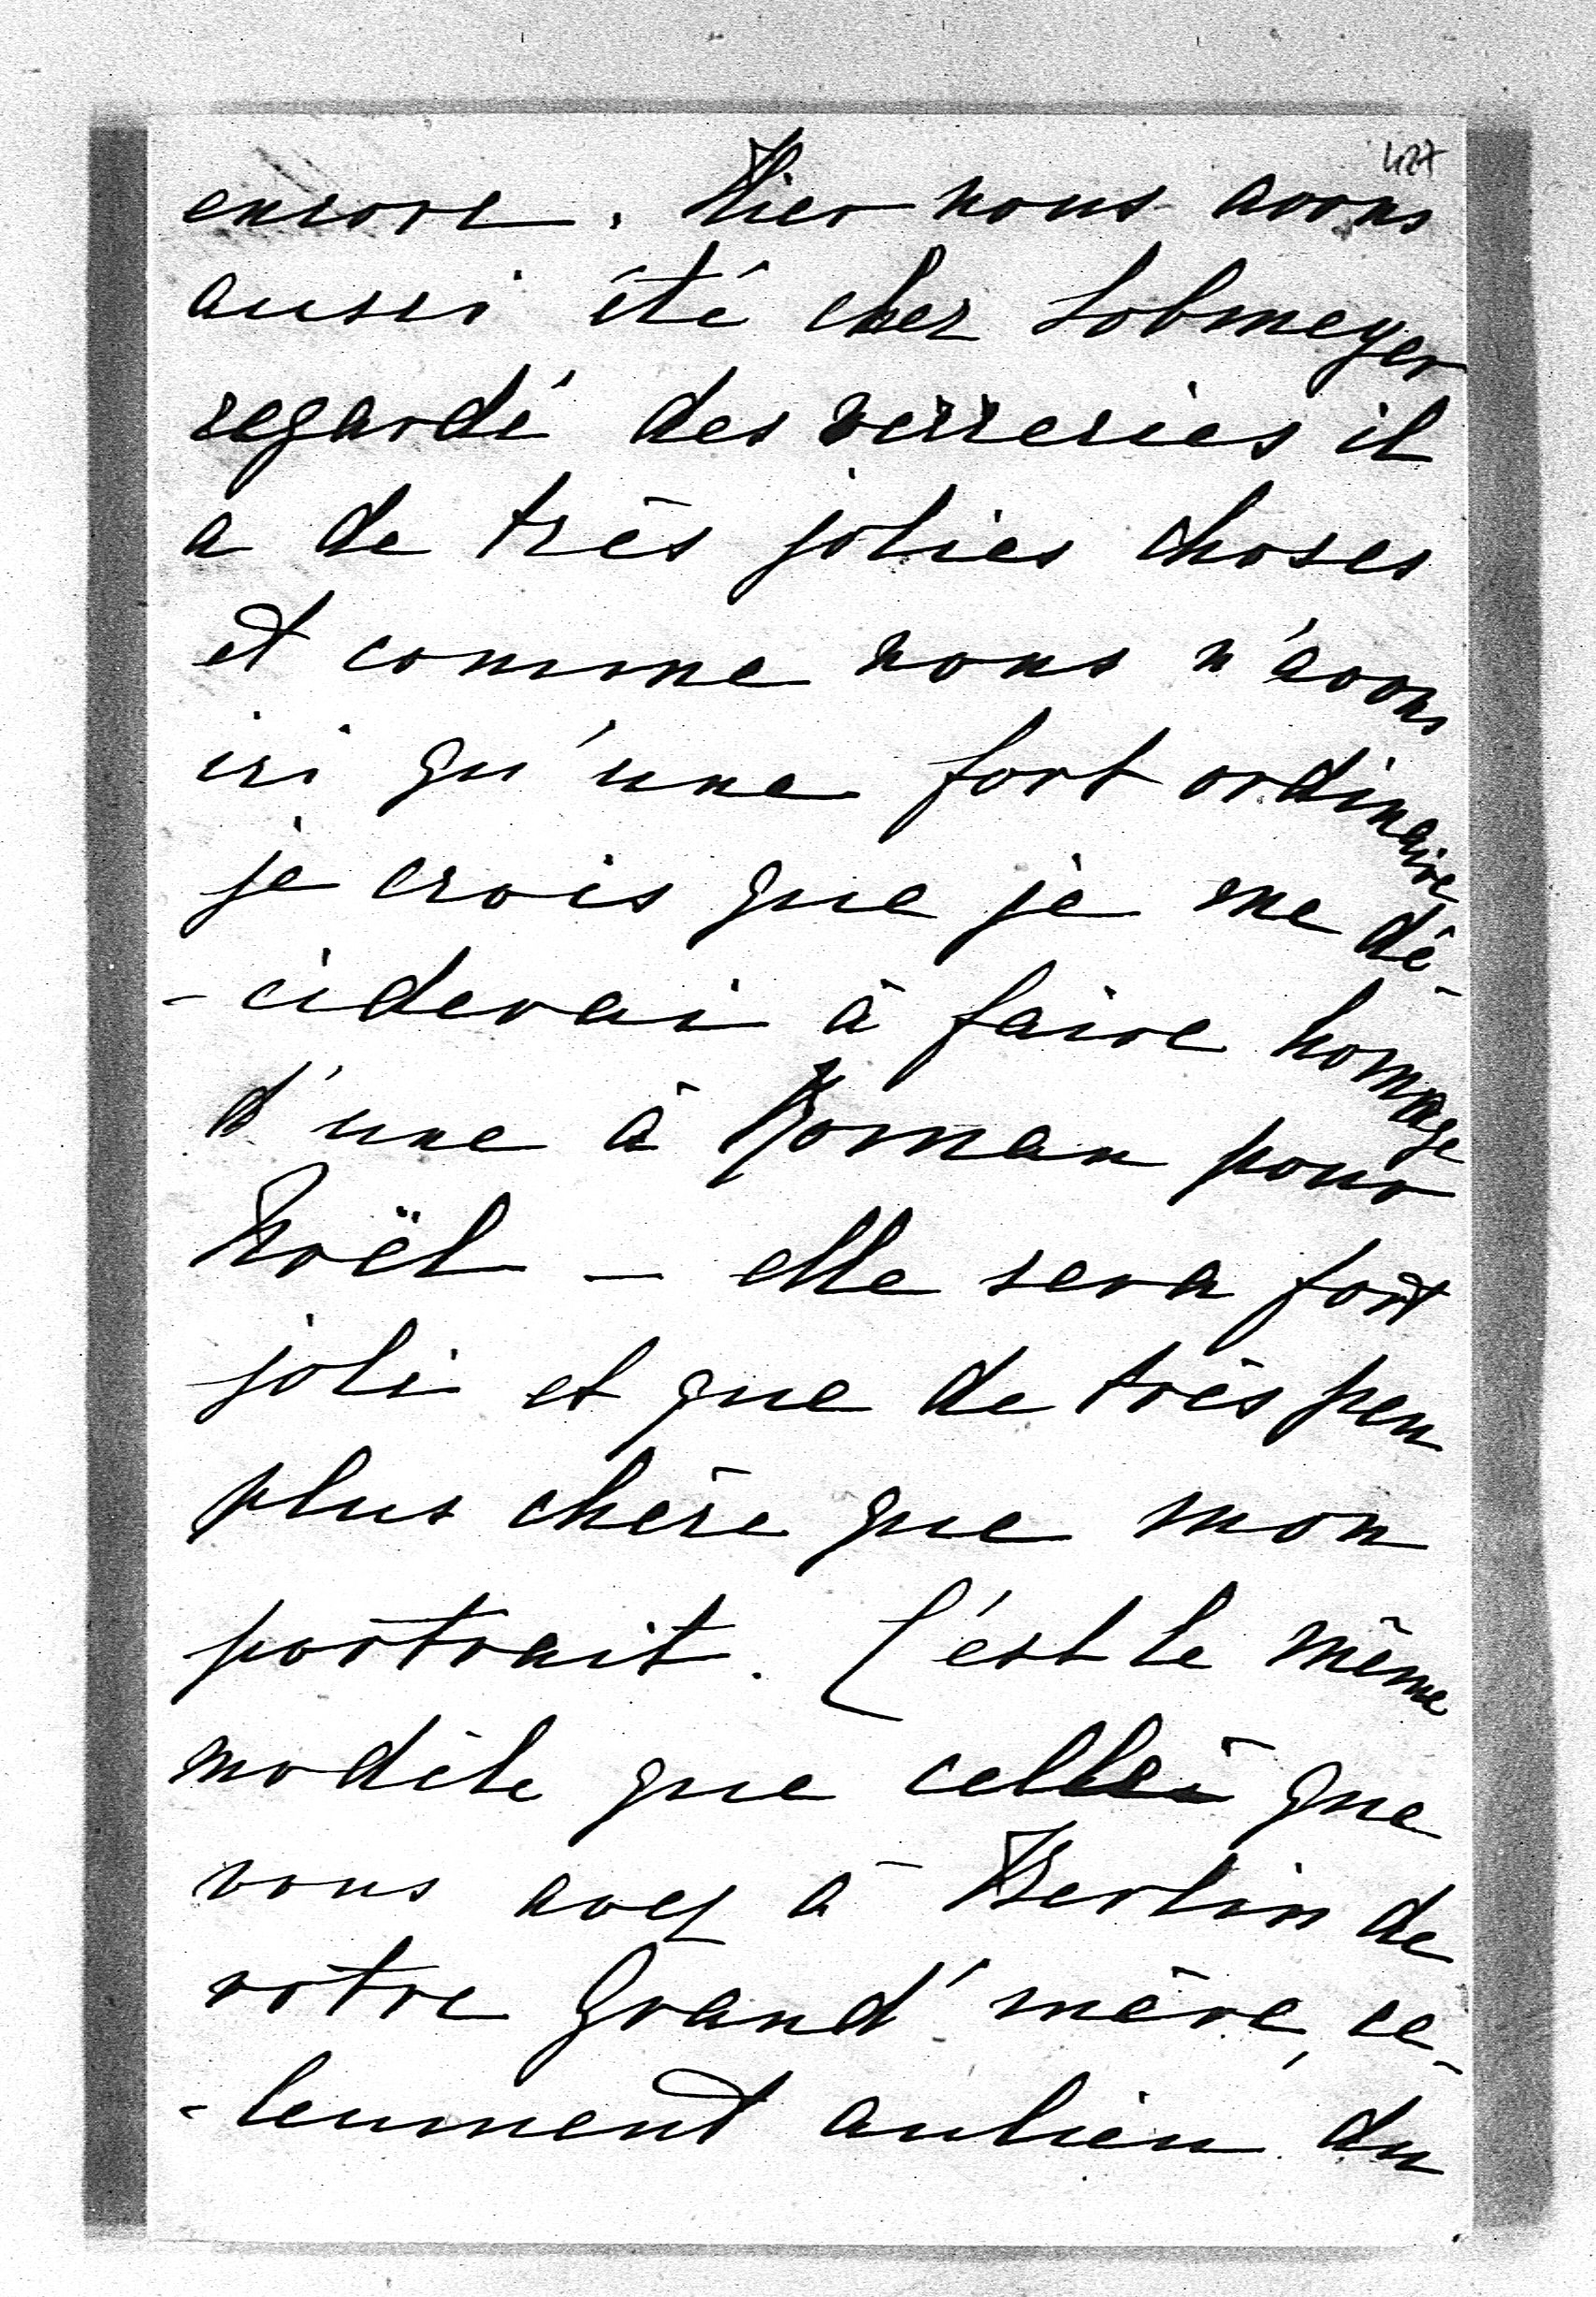 427
encore. Hier nous avons
aussi été chez Lobmeyer
regardé des verreries il
a de très jolies choses
et comme nous n'avons
ici qu'une fort ordinaire
je crois que je me dé-
-ciderai à faire homage
d'une à Roman pour
Noël — elle sera fort
joli et que de très peu
plus chère que mon
portrait. C'est le même
modèle que celle que
vous avez à Berlin de
votre Grand'mère, ce-
-leument aulieu du